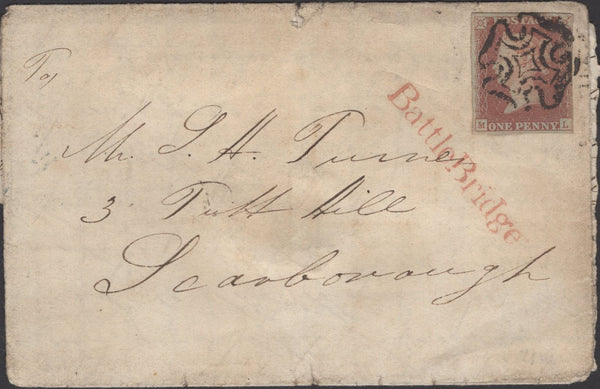 To,
POSTAGE
Battle Bridge
M L
ONE PENNY
Mr. S. H. Turner
3. Tutt Hill
Scarborough